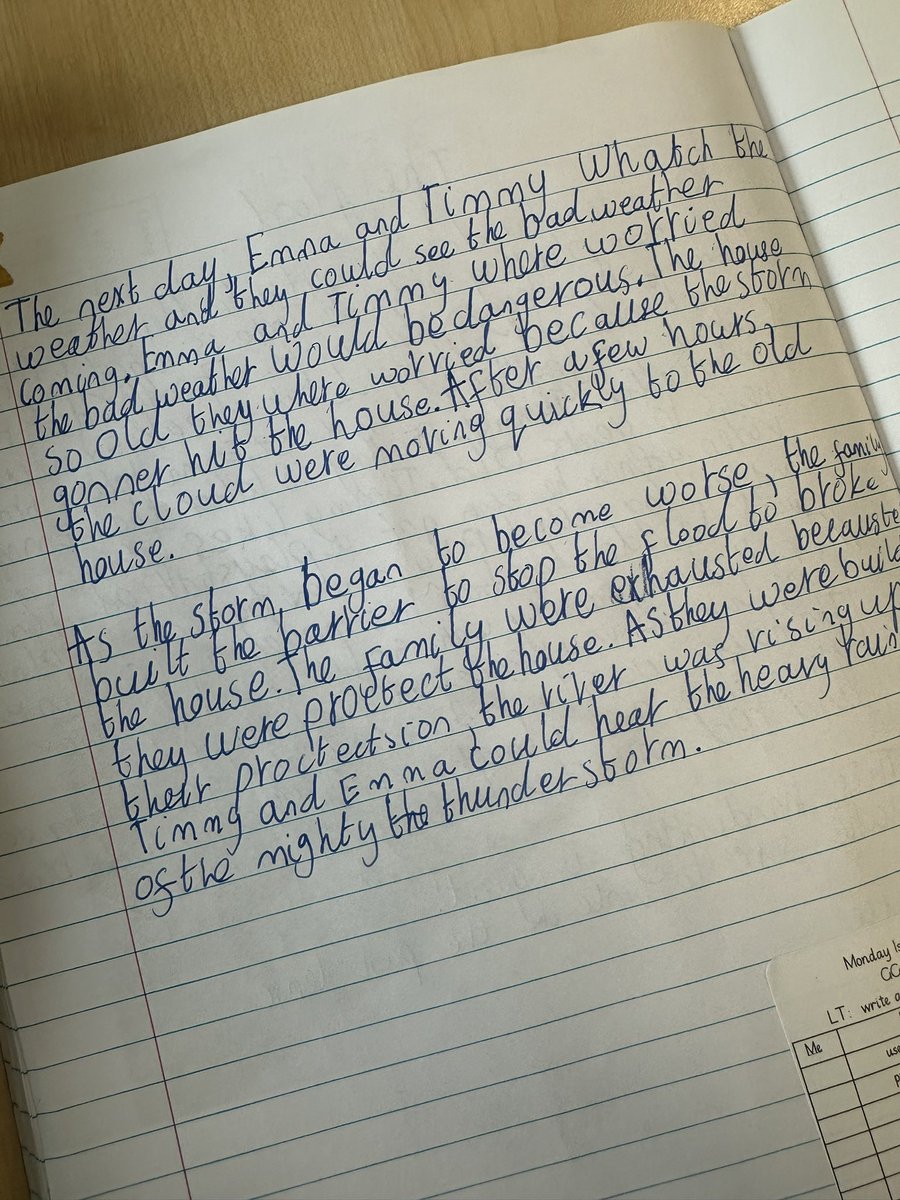 The next day, Emma and Timmy Whatch the
weather and they could see the bad weather
coming. Emma and Timmy where worried
the bad weather would be dangerous. The house
so old they where worried because the storm
gonner hit the house. After a few hours,
the cloud were moving quickly to the old
house.
As the storm, began to become worse, the family
built the barrier to stop the flood to broke
the house. The family were exhausted because
they were proctect the house. As they were build
their proctectsion, the river was rising up
Timmy and Emma could hear the heavy rain
of the mighty the thunderstorm.
Monday
LT: write
Me